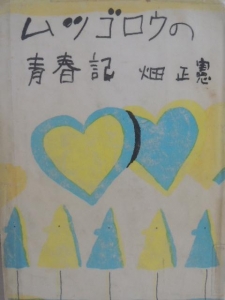 ムツゴロウの
青春記 畑正憲